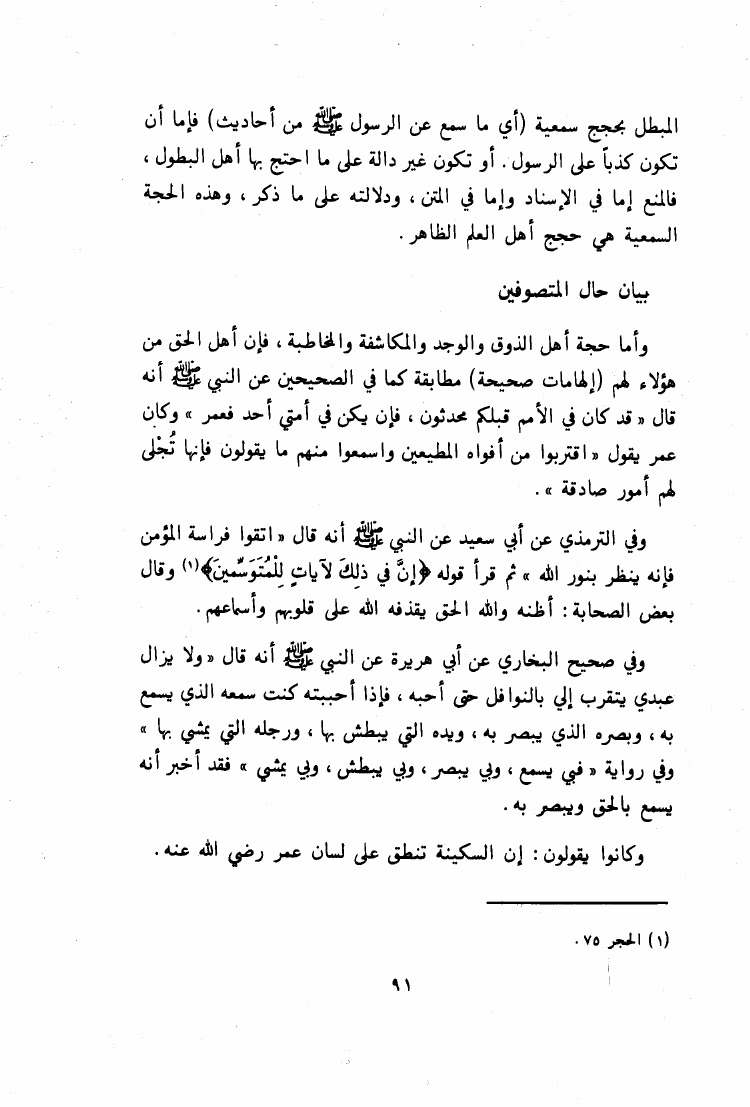 المبطل بحجج سمعية (أي ما سمع عن الرسول ﷺ من أحاديث) فإما أن
تكون كذباً على الرسول. أو تكون غير دالة على ما احتج بها أهل البطول،
فالمنع إما في الإسناد وإما في المتن، ودلالته على ما ذكر، وهذه الحجة
السمعية هي حجج أهل العلم الظاهر.
بيان حال المتصوفين
وأما حجة أهل الذوق والوجد والمكاشفة والمخاطبة، فإن أهل الحق من
هؤلاء لهم (إلهامات صحيحة) مطابقة كما في الصحيحين عن النبي ﷺ أنه
قال « قد كان في الأمم قبلكم محدثون، فإن يكن في أمتي أحد فعمر » وكان
عمر يقول « اقتربوا من أفواه المطيعين واسمعوا منهم ما يقولون فإنها تُجْلى
لهم أمور صادقة ».
وفي الترمذي عن أبي سعيد عن النبي ﷺ أنه قال « اتقوا فراسة المؤمن
فإنه ينظر بنور الله » ثم قرأ قوله ﴿إِنَّ في ذلِكَ لآياتٍ لِلْمُتَوَسِّمينَ﴾(١) وقال
بعض الصحابة: أظنه والله الحق يقذفه الله على قلوبهم وأسماعهم.
وفي صحيح البخاري عن أبي هريرة عن النبي ﷺ أنه قال «ولا يزال
عبدي يتقرب إلي بالنوافل حتى أحبه، فإذا أحببته كنت سمعه الذي يسمع
به، وبصره الذي يبصر به، ويده التي يبطش بها، ورجله التي يمشي بها »
وفي رواية « فبي يسمع، وبي يبصر، وبي يبطش، وبي يمشي » فقد أخبر أنه
يسمع بالحق ويبصر به.
وكانوا يقولون: إن السكينة تنطق على لسان عمر رضي الله عنه.
(١) الحجر ٧٥.
٩١